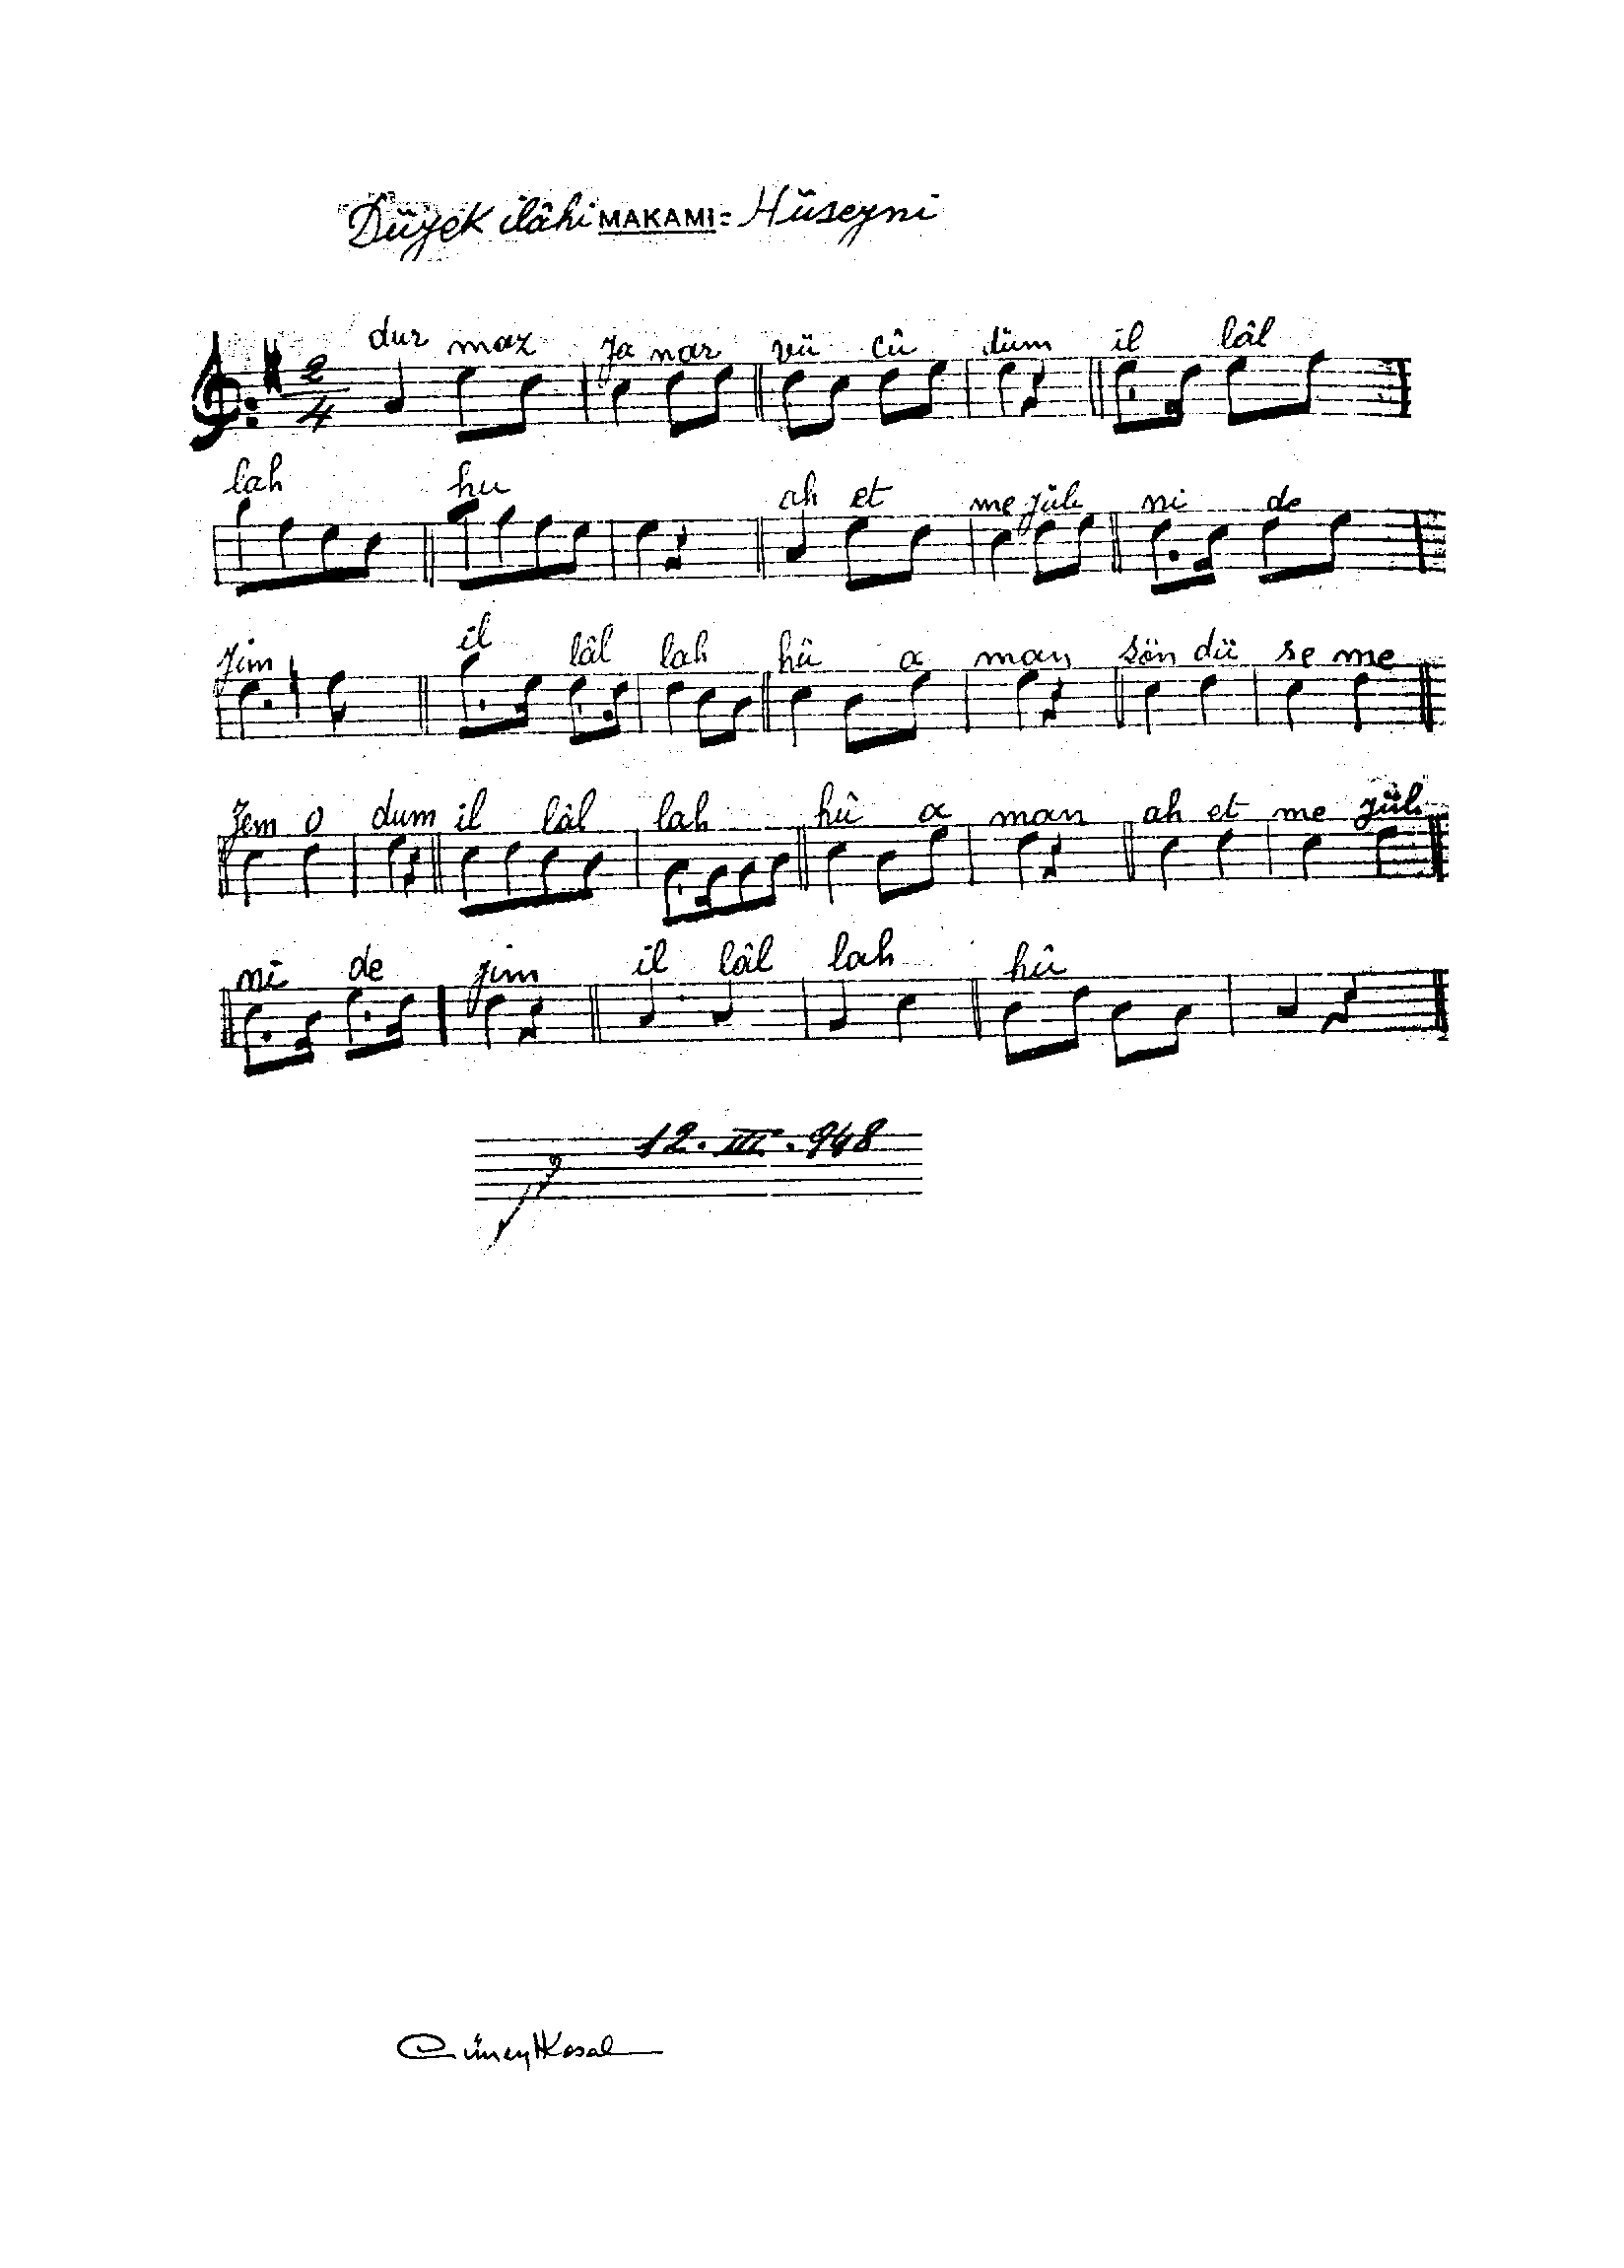 Düyek ilâhi MAKAMI= Hüseyni
2/4
dur maz ja nar vü cû düm il lâl
lah hu ah et me jül ni de
jim il lâl lah hû a man sön dü se me
jem o dum il lâl lah hû a man ah et me jül
ni de jim il lâl lah hû
12. III. 948
Cüneyd Kosal